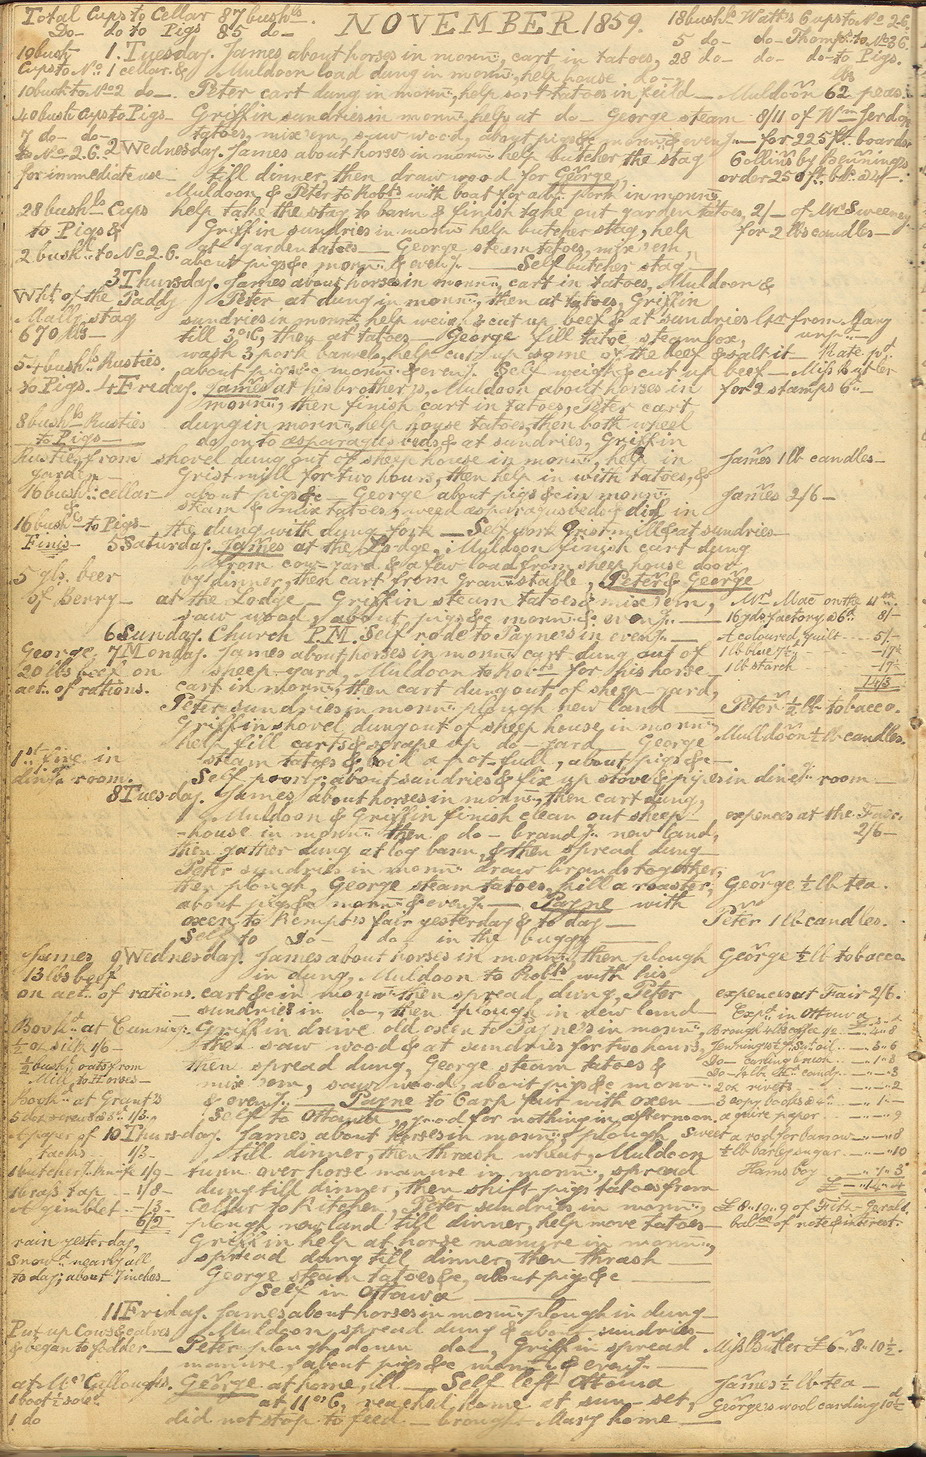 Total Cups to Cellar 87 bushls.
NOVEMBER 1859.
18 bushls Watts Cups to No 2.6.
Do- do to Pigs 85 do-
5 do- do- Thomps. to No 2 6.
10 bush
Cups to No 1 cellar. &
1. Tuesday. James about horses in mornn., cart in tatoes, 28 do- do- do- to Pigs.
Muldoon load dung in mornn., help house do-,
10 bush to No 2 do-.
Peter cart dung in mornn., help sort tatoes in feild-
Muldoon 62 lbs peas
40 bush Cups to Pigs-
Griffin sundries in mornn. help at do- George steam
8/11 of Wm
7 do- do-
tatoes, mix'em, saw wood, about pigs &c mornn. & eveng.-
for 225 ft. boards
to No. 2.6.
2 Wednesday. James about horses in mornn. help butcher the stag
for immediate use-
till dinner, then draw wood for George,
order 250 ft.
Muldoon & Peter to Robts. with boat for a bl. pork in mornn.
28 bushls Cups
help take the stag to barn & finish take out garden tatoes,
2/- of McSweeney
to Pigs &
Griffin sundries in mornn. help butcher stag, help
for 2 lbs candles-
2 bushls. to No 2.6.
at garden tatoes- George steam tatoes, mix'em,
about pigs &c mornn. & eveng.- Self butcher stag-
3 Thursday. James about horses in mornn., cart in tatoes, Muldoon &
Wht. of the Paddy
Peter at dung in mornn., then at tatoes, Griffin
Mally stag
sundries in mornn., help weigh & cut up beef & at sundries
Ltr from Mary
670 lbs-
till 3 o'C, then at tatoes- George fill tatoe steambox,
wash 3 pork barrels, help cut up some of the beef & salt it-
54 bushls Rusties
about pigs &c mornn. & eveng. Self weigh & cut up beef-
Miss Butler
to Pigs.
4 Friday. James at his brother's, Muldoon about horses in
for 2 stamps 6d-
mornn., then finish cart in tatoes, Peter cart
8 bushls Rusties
dung in mornn., help house tatoes, then both wheel
to Pigs-
do, on to asparagus beds, & at sundries, Griffin
Rusties from
shovel dung out of sheep house in mornn., help in
James 1 lb candles-
garden-
Grist mill for two hours, then help in with tatoes, &
16 bushls. cellar-
about pigs &c- George about pigs &c in mornn.
James 2/6-
steam & mix tatoes, weed asparagus beds & did in
16 bush &c to Pigs-
the dung with dung fork- Self work Gristmill & at sundries-
Finis-
5 Saturday. James at the Lodge, Muldoon finish cart dung
from cow-yard & a few load from sheep house door
5 gls. beer
by dinner, then cart from Gran. stable, Peter & George
of Berry-
at the Lodge- Griffin steam tatoes & mix'em,
Mrs Mac on the 4th.
saw wood, & about pigs &c mornn. & eveng.-
16 yds factory a 6d. 8/-
6 Sunday. Church P.M. Self rode to Payne's in eveng.-
A coloured quilt 5/-
George,
7 Monday. James about horses in mornn. cart dung out of
20 lbs beef on
sheep-yard, Muldoon to Robts for his horse
1 lb starch
act. of rations.
cart in mornn., then cart dung out of sheep-yard,
14/3
Peter sundries in mornn. plough new land-
Peter 1/2 lb tobacco.
Griffin shovel dung out of sheep house in mornn.
help fill carts & scrape up do-yard- George
Muldoon 1/2 lb candles.
1st fire in
steam tatoes & boil a pot-full, about pigs &c-
dining room.
Self poorly; about sundries & fix up stove & pipes in dineg. room-
8 Tuesday. James about horses in mornn., then cart dung,
Muldoon & Griffin finish clean out sheep-
expences at the Fair.
-house in mornn. then do- brandg. new land,
2/6-
then gather dung at log barn, & then spread dung-
Peter sundries in mornn. draw brands together,
then plough, George steam tatoes, kill a roaster,
George 1/2 lb tea.
about pigs &c mornn. & eveng.- Payne with
oxen, to Kempt's fair yesterday & to day-
Peter 1 lb candles.
Self to do- do- in the buggy-
James
9 Wednesday. James about horses in mornn. then plough
George 1/2 lb tobacco
13 lbs beef
in dung, Muldoon to Robts. with his
on act. of rations.
cart &c in mornn. then spread dung, Peter
expences at Fair 2/6.
sundries in do-, then plough in new land-
Exps. in Ottawa
Griffin drive old oxen to Payne's in mornn.
then saw wood & at sundries for two hours,
1/2 bushl. oats from
then spread dung, George steam tatoes &
Mill to Horses-
mix'em, saw wood, about pigs &c mornn.
2 oz rivets
Bookd. at Grant's
& eveng.- Payne to Carp put with oxen-
3 copy books a 4d
Self to Ottawa road for nothing in afternoon.
a quire paper 9
a paper of
10 Thursday. James about horses in mornn., plough
tacks 1/3-
till dinner, then thrash wheat, Muldoon
1/2 lb barley sugar 10
1 butcher's knife 1/9-
turn over horse manure in mornn., spread
16 rasp tap 1/8-
dung till dinner, then shift pigs tatoes from
a gimblet 1/3-
cellar to Kitchen, Peter sundries in mornn.,
6/2
plough new land till dinner, help move tatoes-
balce of note & interest.
rain yesterday,
Griffin help at horse manure in mornn.,
snowd. nearly all
spread dung till dinner, then thrash-
to day; about 7 inches-
George steam tatoes &c, about pigs &c-
Self in Ottawa-
11 Friday. James about horses in mornn., plough in dung-
Put up Cows & calves
Muldoon spread dung & about sundries-
& began to fodder-
Peter plough down do-, Griffin spread
Miss Butler £6..8..10 1/2.
manure, about pigs &c mornn. & eveng.-
at McCullough's.
George at home, ill- Self left Ottawa
James 1/2 lb tea-
1 boot 1/2 soled
at 11 o'C, reached home at sun-set,
George's wool carding
1 do
did not stop to feed- brought Mary home-